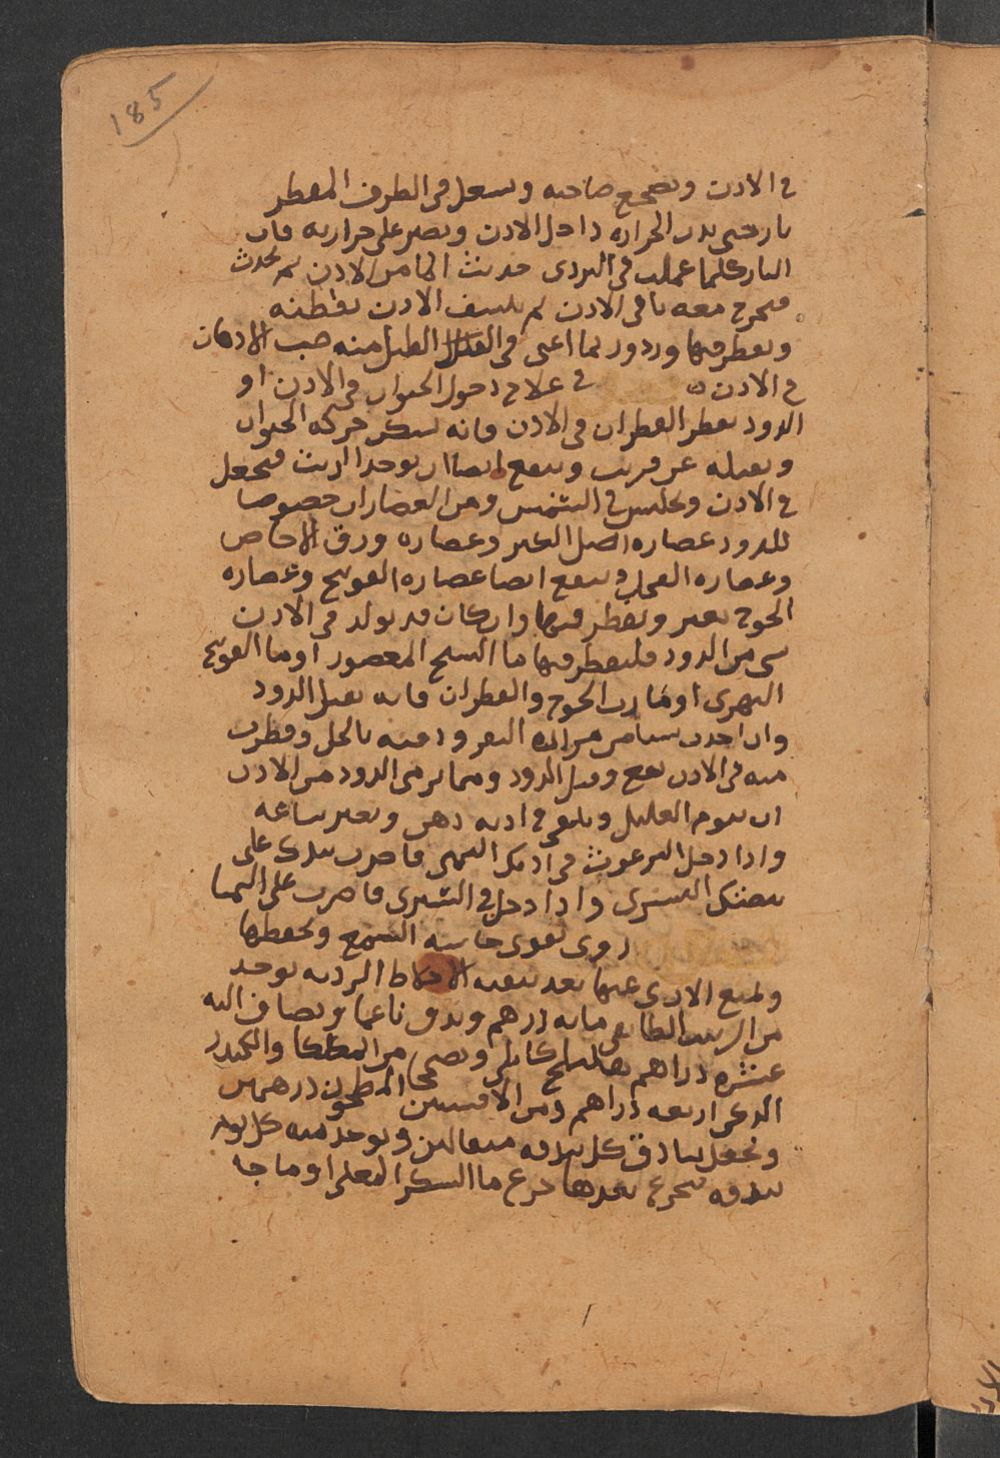 185
في الاذن ويضجع صاحبه ويشعل في الطرف المقطر
نار حتى تدب الحرارة داخل الاذن ويصبر على حرارته فان
النار كلما عملت في البردى حدبت الما من الاذن
فيخرج معه ما في الاذن ثم ينشف الاذن بقطنه
ويقطر فيها ورد ورد بما اعنى في الطل منه صب الادهان
في الاذن في علاج دخول الحيوان في الاذن او
الدود يقطر القطران في الاذن فانه يسكن حركه الحيوان
ويقتله عن قريب وينفع ايضا ان يوخد الزيت فيجعل
في الاذن ويجلس في الشمس ومن العصارات خصوصا
للدود عصاره اصل الكبر وعصاره ورق الاجاص
وعصاره الفجل وينفع ايضا عصاره الفوتنج وعصاره
الخوخ يعصر ويقطر فيها وان كان قد تولد في الاذن
شى من الدود فليقطر فيها ما الشيح المعصور او ما الفوتنج
النهرى او ما ورق الخوخ والقطران فانه يقتل الدود
وان اخدت شيا من مراره البقر ودفته بالخل وقطرت
منه في الاذن نفع وقتل الدود ومما يرمى الدود من الاذن
ان ينوم العليل ويلقى في اذنه دهن ويصبر ساعه
واذا دخل البرغوث في اذنك اليمنى فاضرب بيدك على
بيضتك اليسرى واذا دخل في اليسرى فاضرب على اليمنا
دوى يقوى حاسه السمع ويحفظها
ويمنع الاذى عنها بعد تنقيه الاخلاط الرديه يوخد
من الزبيب الطايفى مايه درهم ويدق ناعما ويضاف اليه
عشره دراهم هليلج كابلى ومن المصطكا والكندر
الذكر اربعه دراهم ومن الافسنتين المطحون درهمين
ويجعل بنادق كل بندقه مثقالين ويوخد منه كل يوم
بندقه يتجرع بعدها جرع ما السكر المغلى او ما حبه